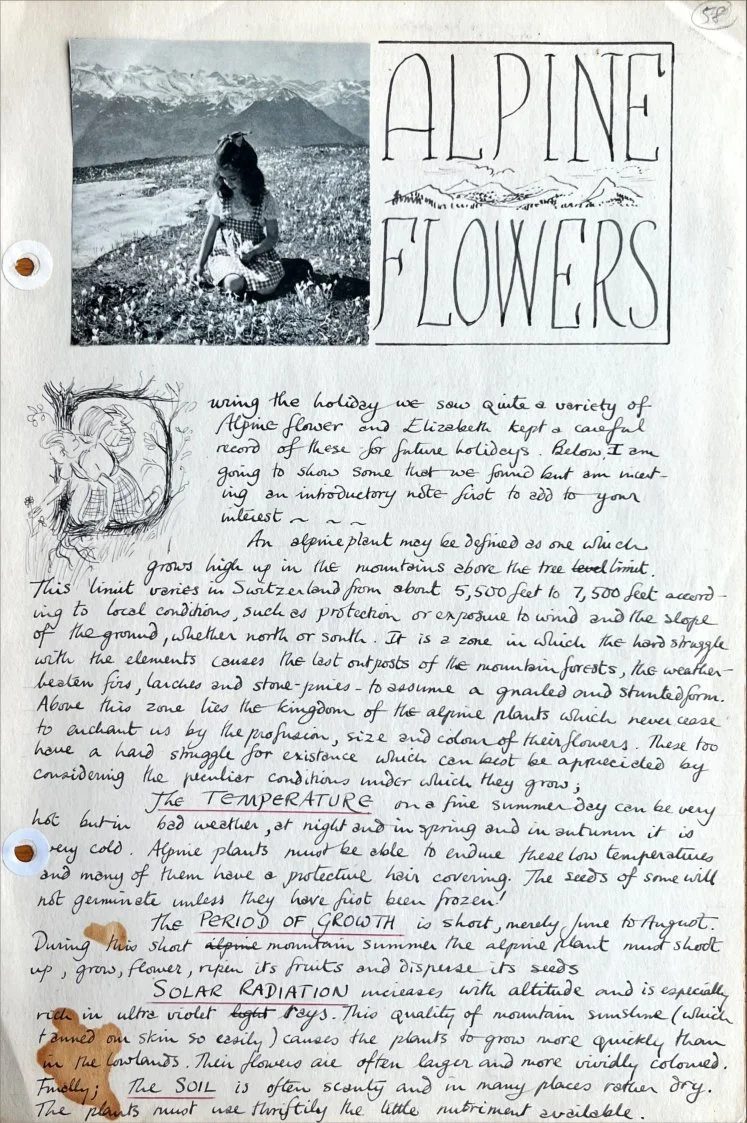 58
ALPINE
FLOWERS
During the holiday we saw quite a variety of
Alpine flower and Elizabeth kept a careful
record of these for future holidays. Below, I am
going to show some that we found but am insert-
ing an introductory note first to add to your
interest ~ ~ ~
An alpine plant may be defined as one which
grows high up in the mountains above the tree level limit.
This limit varies in Switzerland from about 5,500 feet to 7,500 feet accord-
ing to local conditions, such as protection or exposure to wind and the slope
of the ground, whether north or south. It is a zone in which the hard struggle
with the elements causes the last outposts of the mountain forests, the weather-
beaten firs, larches and stone-pines - to assume a gnarled and stunted form.
Above this zone lies the kingdom of the alpine plants which never cease
to enchant us by the profusion, size and colour of their flowers. These too
have a hard struggle for existance which can best be appreciated by
considering the peculiar conditions under which they grow;
The TEMPERATURE on a fine summer day can be very
hot but in bad weather, at night and in spring and in autumn it is
very cold. Alpine plants must be able to endure these low temperatures
and many of them have a protective hair covering. The seeds of some will
not germinate unless they have first been frozen!
The PERIOD OF GROWTH is short, merely June to August.
During this short alpine mountain summer the alpine plant must shoot
up, grow, flower, ripen its fruits and disperse its seeds
SOLAR RADIATION increases with altitude and is especially
rich in ultra violet light rays. This quality of mountain sunshine (which
tanned our skin so easily) causes the plants to grow more quickly than
in the lowlands. Their flowers are often larger and more vividly coloured.
Finally; The SOIL is often scanty and in many places rather dry.
The plants must use thriftily the little nutriment available.